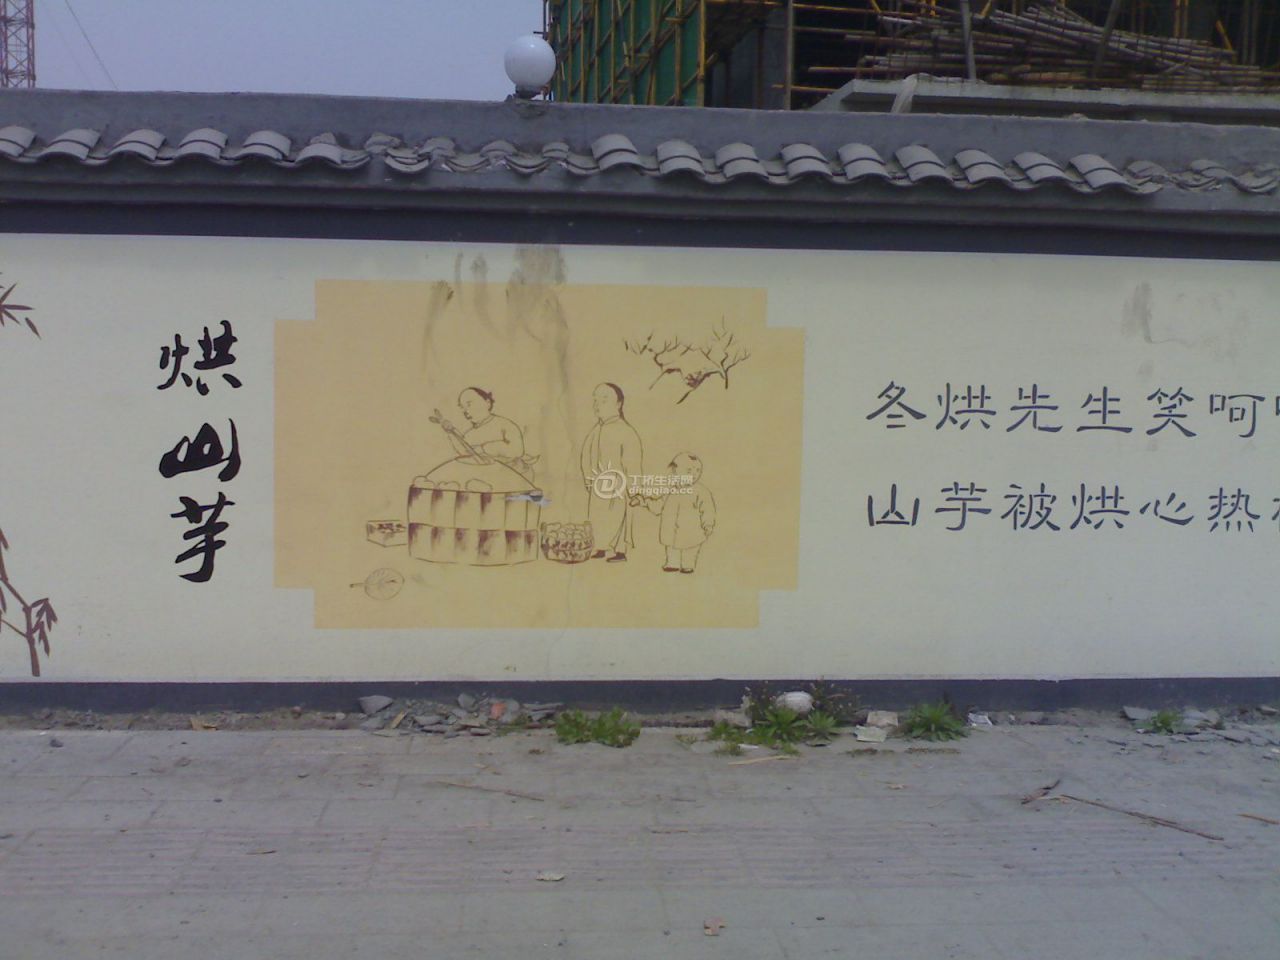 烘山芋
冬烘先生笑呵
山芋被烘心热
丁桥生活网
dingqiao.cc